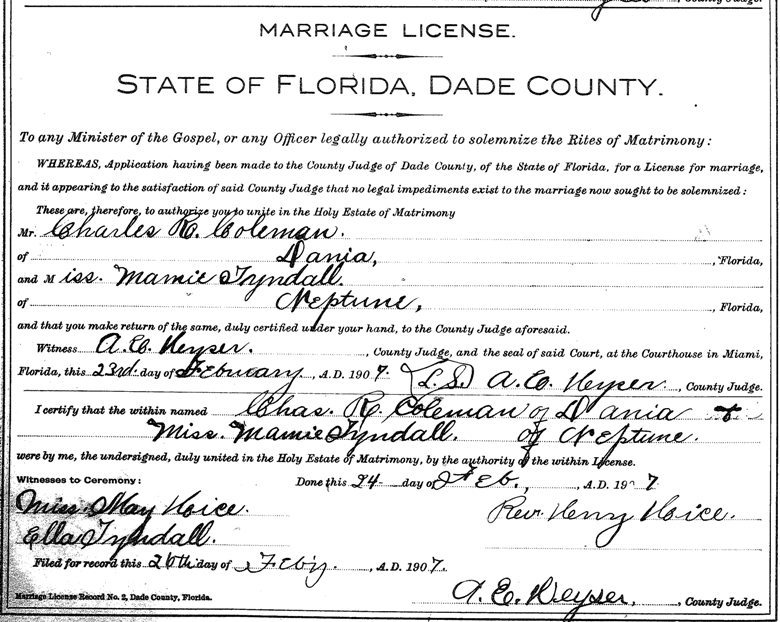 , County Judge.
MARRIAGE LICENSE.
STATE OF FLORIDA, DADE COUNTY.
To any Minister of the Gospel, or any Officer legally authorized to solemnize the Rites of Matrimony:
WHEREAS, Application having been made to the County Judge of Dade County, of the State of Florida, for a License for marriage,
and it appearing to the satisfaction of said County Judge that no legal impediments exist to the marriage now sought to be solemnized:
These are, therefore, to authorize you to unite in the Holy Estate of Matrimony
Mr. Charles R. Coleman.
of Dania, , Florida,
and Miss. Mamie Tyndall.
of Neptune, , Florida,
and that you make return of the same, duly certified under your hand, to the County Judge aforesaid.
Witness A. E. Heyser. , County Judge, and the seal of said Court, at the Courthouse in Miami,
Florida, this 23rd. day of February. , A.D. 1907. (L.S.) A. E. Heyser , County Judge.
I certify that the within named Chas. R. Coleman of Dania &
Miss. Mamie Tyndall. of Neptune.
were by me, the undersigned, duly united in the Holy Estate of Matrimony, by the authority of the within License.
Witnesses to Ceremony: Done this 24 day of Feb., , A.D. 190 7
Miss. May Hoice. Rev. Henry Hoice.
Ella Tyndall.
Filed for record this 26th day of Feby. , A.D. 1907.
A. E. Heyser, , County Judge.
Marriage License Record No. 2, Dade County, Florida.